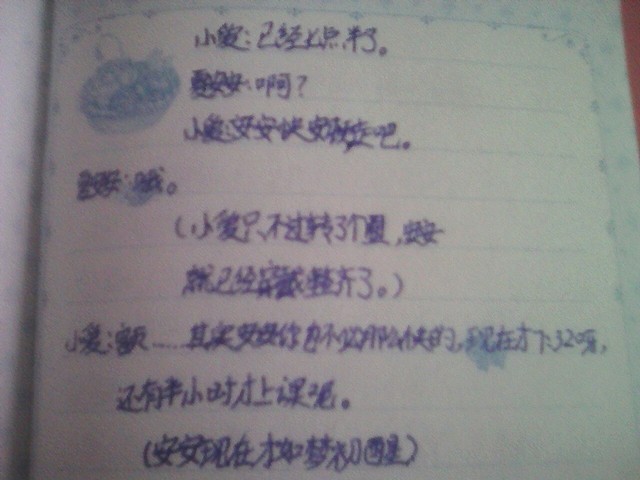 小爱:已经七点半了。
安安:啊?
小爱:安安快穿衣吧。
安安:哦。
(小爱只不过转了个圈,安安
就已经穿戴整齐了。)
小爱:额……其实安安你用不必那么快的,现在才7:32呀,
还有半小时才上课呢。
(安安现在才如梦初醒)